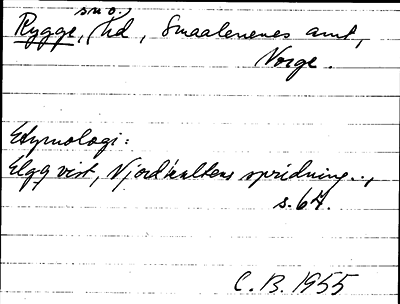 sn o.
Rygge, hd, Smaalenenes amt,
Norge.
Etymologi:
Elgqvist, Njordkultens spridning..,
s. 67.
C. B. 1955